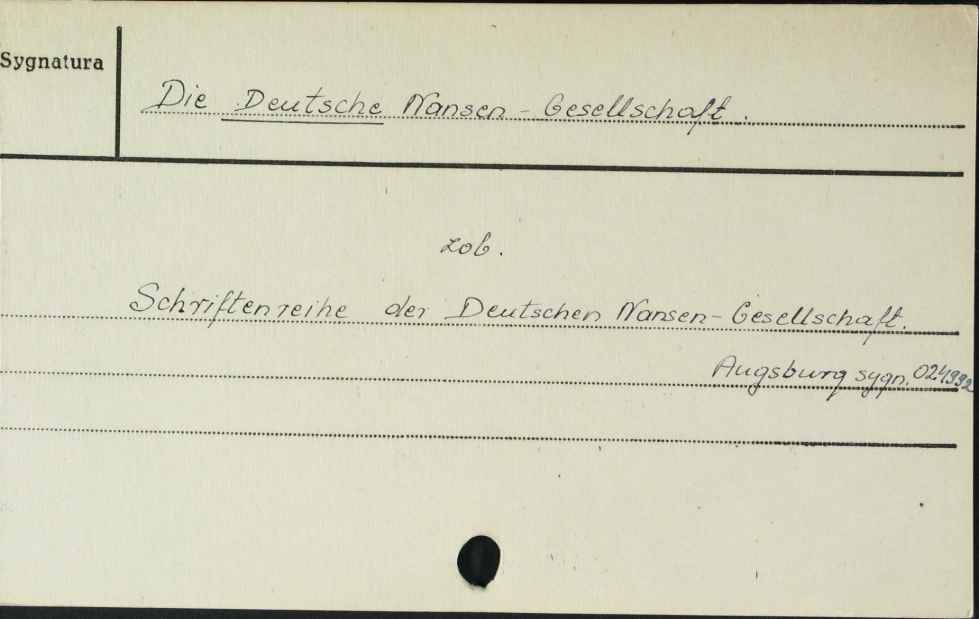 Sygnatura
Die Deutsche Nansen - Gesellschaft.
zob.
Schriftenreihe der Deutschen Nansen - Gesellschaft.
Augsburg sygn. 024992